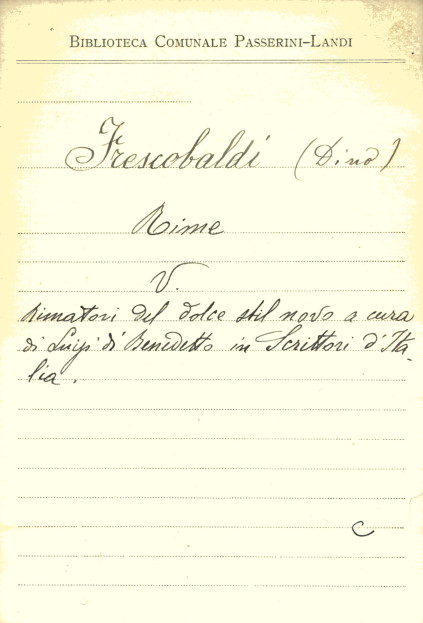 BIBLIOTECA COMUNALE PASSERINI-LANDI
Frescobaldi (Dino)
Rime
V.
Rimatori del dolce stil novo a cura
di Luigi di Benedetto in Scrittori d'Ita-
lia.
C